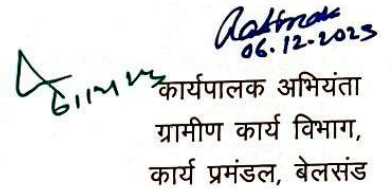 06.12.2023
6/12/23
कार्यपालक अभियंता
ग्रामीण कार्य विभाग,
कार्य प्रमंडल, बेलसंड